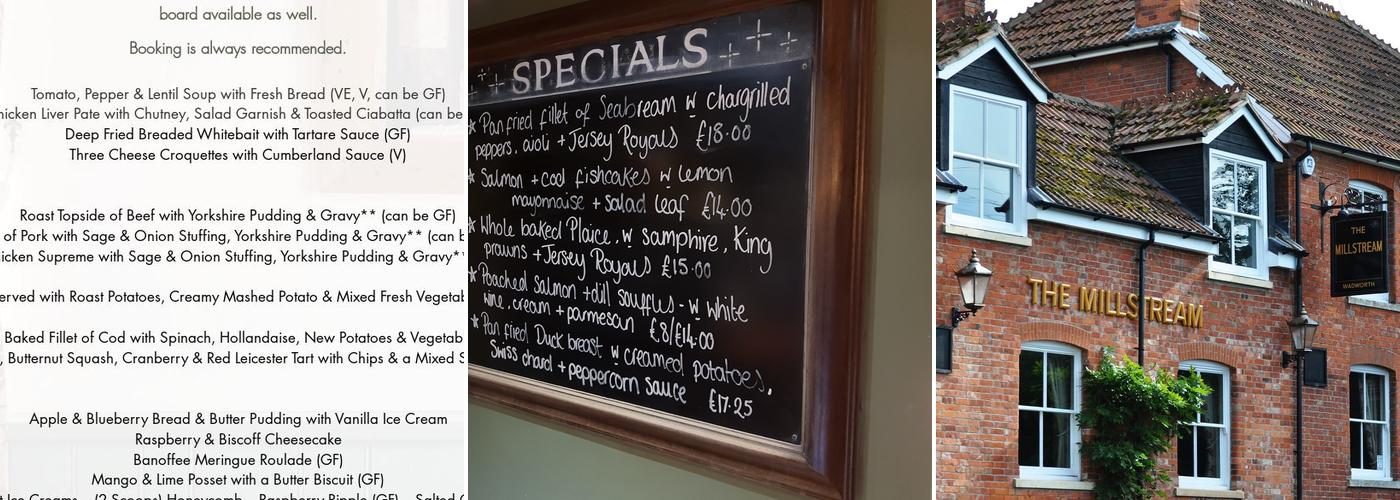 board available as well.
Booking is always recommended.
Tomato, Pepper & Lentil Soup with Fresh Bread (VE, V, can be GF)
Liver Pate with Chutney, Salad Garnish & Toasted Ciabatta (can be
Deep Fried Breaded Whitebait with Tartare Sauce (GF)
Three Cheese Croquettes with Cumberland Sauce (V)
Roast Topside of Beef with Yorkshire Pudding & Gravy** (can be GF)
of Pork with Sage & Onion Stuffing, Yorkshire Pudding & Gravy** (can
Supreme with Sage & Onion Stuffing, Yorkshire Pudding & Gravy*
with Roast Potatoes, Creamy Mashed Potato & Mixed Fresh
Baked Fillet of Cod with Spinach, Hollandaise, New Potatoes &
, Butternut Squash, Cranberry & Red Leicester Tart with Chips & a Mixed
Apple & Blueberry Bread & Butter Pudding with Vanilla Ice Cream
Raspberry & Biscoff Cheesecake
Banoffee Meringue Roulade (GF)
Mango & Lime Posset with a Butter Biscuit (GF)
Ice Creams – (2 Scoops) Honeycomb – Raspberry Ripple (GF) –
SPECIALS
* Pan fried fillet of Seabream w chargrilled
peppers, aioli + Jersey Royals £18.00
* Salmon + cod fishcakes w lemon
mayonnaise + salad leaf £14.00
* Whole baked Plaice, w samphire, King
prawns + Jersey Royals £15.00
* Poached salmon + dill souffles - w white
wine, cream + parmesan £8/£14.00
* Pan fried Duck breast w creamed potatoes,
Swiss chard + peppercorn sauce £17.25
THE MILLSTREAM
THE
MILLSTREAM
WADWORTH